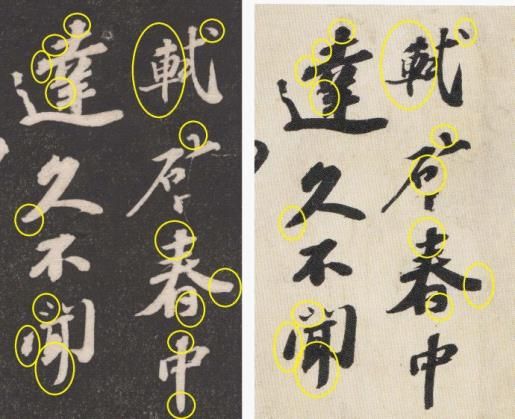 軾啓春中
達久不聞
軾啓春中
達久不聞